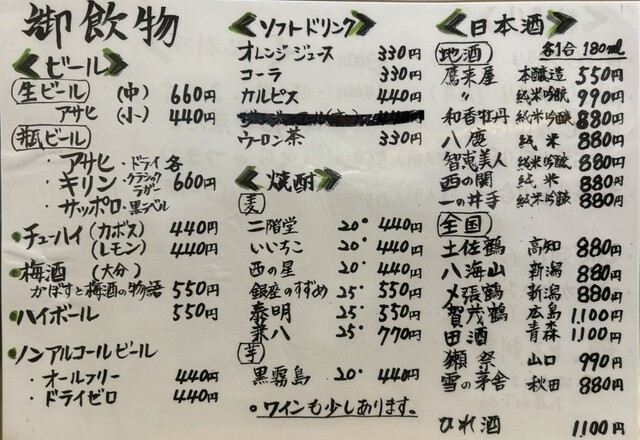 御飲物
《ビール》
生ビール (中) 660円
アサヒ (小) 440円
瓶ビール
・アサヒ・ドライ 各
・キリン・クラシックラガー 660円
・サッポロ・黒ラベル
・チューハイ(カボス) 440円
(レモン) 440円
・梅酒 (大分)
かぼすと梅酒の物語 550円
・ハイボール 550円
・ノンアルコールビール
・オールフリー 440円
・ドライゼロ 440円
《ソフトドリンク》
オレンジジュース 330円
コーラ 330円
カルピス 440円
ウーロン茶 330円
《焼酎》
麦
二階堂 20° 440円
いいちこ 20° 440円
西の星 20° 440円
銀座のすずめ 25° 550円
泰明 25° 550円
兼八 25° 770円
芋
黒霧島 20° 440円
○ワインも少しあります。
《日本酒》
地酒 各1合 180ml
鷹来屋 本醸造 550円
〃 純米吟醸 990円
和香牡丹 純米吟醸 880円
八鹿 純米 880円
智恵美人 純米吟醸 880円
西の関 純米 880円
一の井手 純米吟醸 880円
全国
土佐鶴 高知 880円
八海山 新潟 880円
〆張鶴 新潟 880円
賀茂鶴 広島 1,100円
田酒 青森 1,100円
獺祭 山口 990円
雪の茅舎 秋田 880円
ひれ酒 1,100円